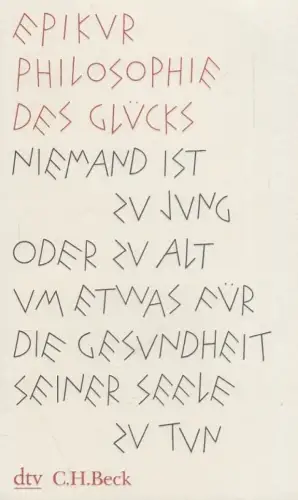 EPIKVR
PHILOSOPHIE
DES GLÜCKS
NIEMAND IST
ZV JVNG
ODER ZV ALT
VM ETWAS FÜR
DIE GESVNDHEIT
SEINER SEELE
ZV TVN
dtv C.H.Beck